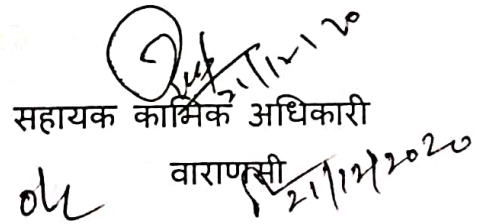 21/12/20
सहायक कार्मिक अधिकारी
वाराणसी
21/12/2020